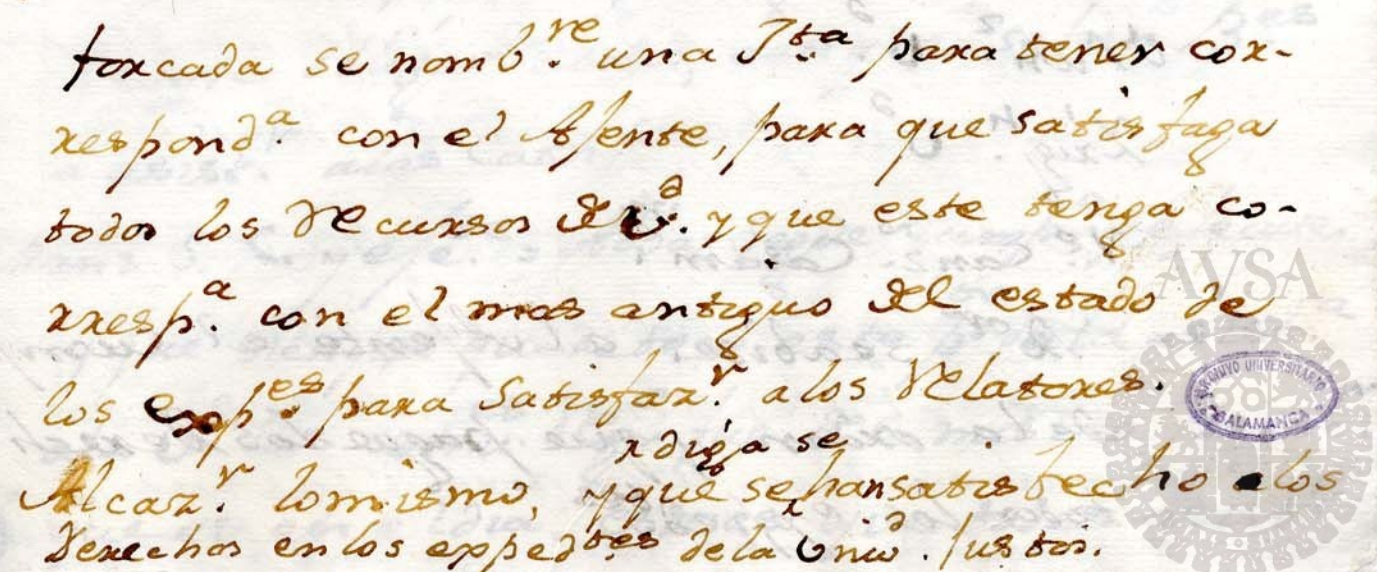 forcada se nomb.re una J.ta para tener cor-
respond.a con el Ajente, para que satisfaga
todos los recursos de U.d y que este tenga co-
rresp.a con el mas antiguo del estado de
los exp.es para Satisfaz.r a los Relatores.
Alcaz.r lo mismo, y que se diga se han satisfecho a los
derechos en los exped.tes de la Univ.d justos.
AVSA
ARCHIVO UNIVERSITARIO
SALAMANCA